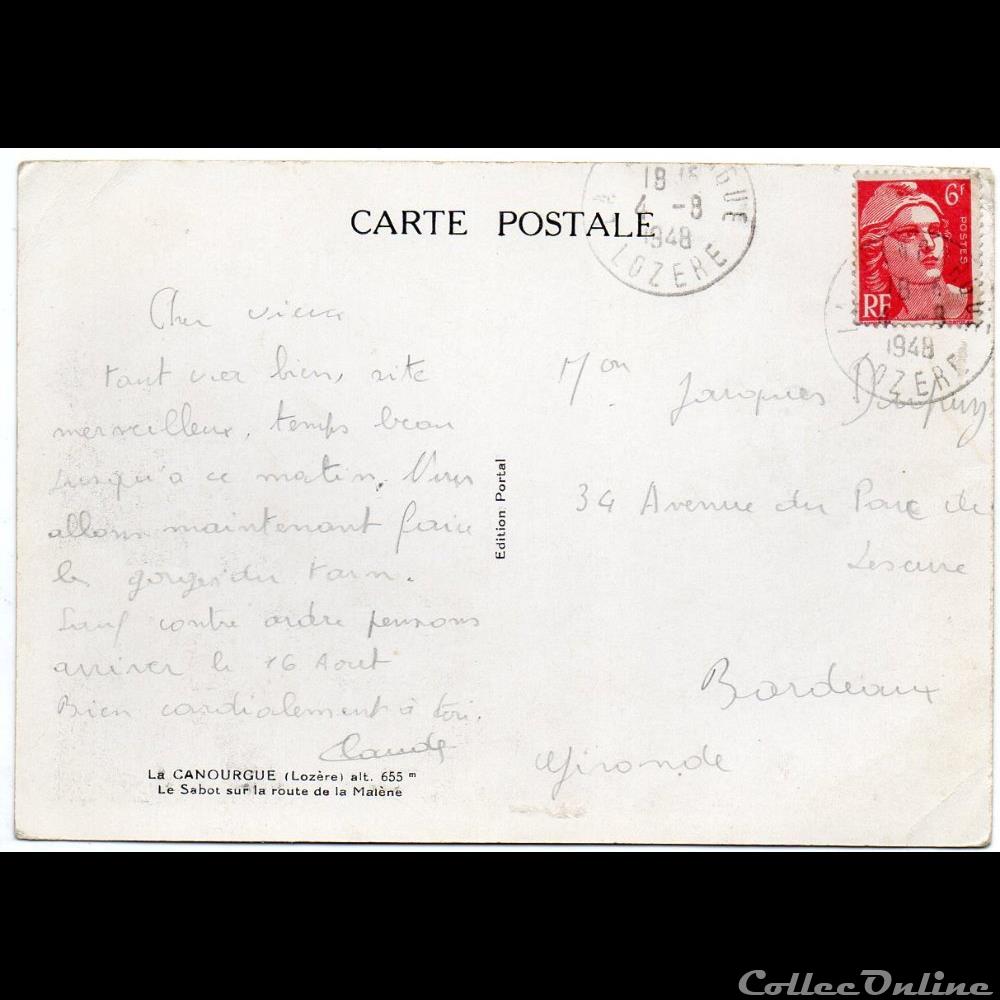 CARTE POSTALE
18 15
4 -8
1948
LOZERE
6F
POSTES
RF
1948
LOZERE
Cher vieux
tout va bien, site
merveilleux, temps beau
Jusqu'à ce matin. Nous
allons maintenant faire
les gorges du Tarn.
Sauf contre ordre pensons
arriver le 16 Aout
Bien cordialement à toi.
Claude
La CANOURGUE (Lozère) alt. 655 m
Le Sabot sur la route de la Malène
Edition Portal
Mon Jacques Dupuy
34 Avenue du Parc de
Lescure
Bordeaux
Gironde
ColleeOnline